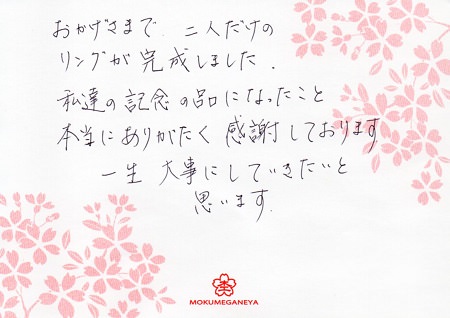 おかげさまで 二人だけの
リングが完成しました.
私達の記念の品になったこと
本当にありがたく 感謝しております
一生 大事にしていきたいと
思います.
MOKUMEGANEYA